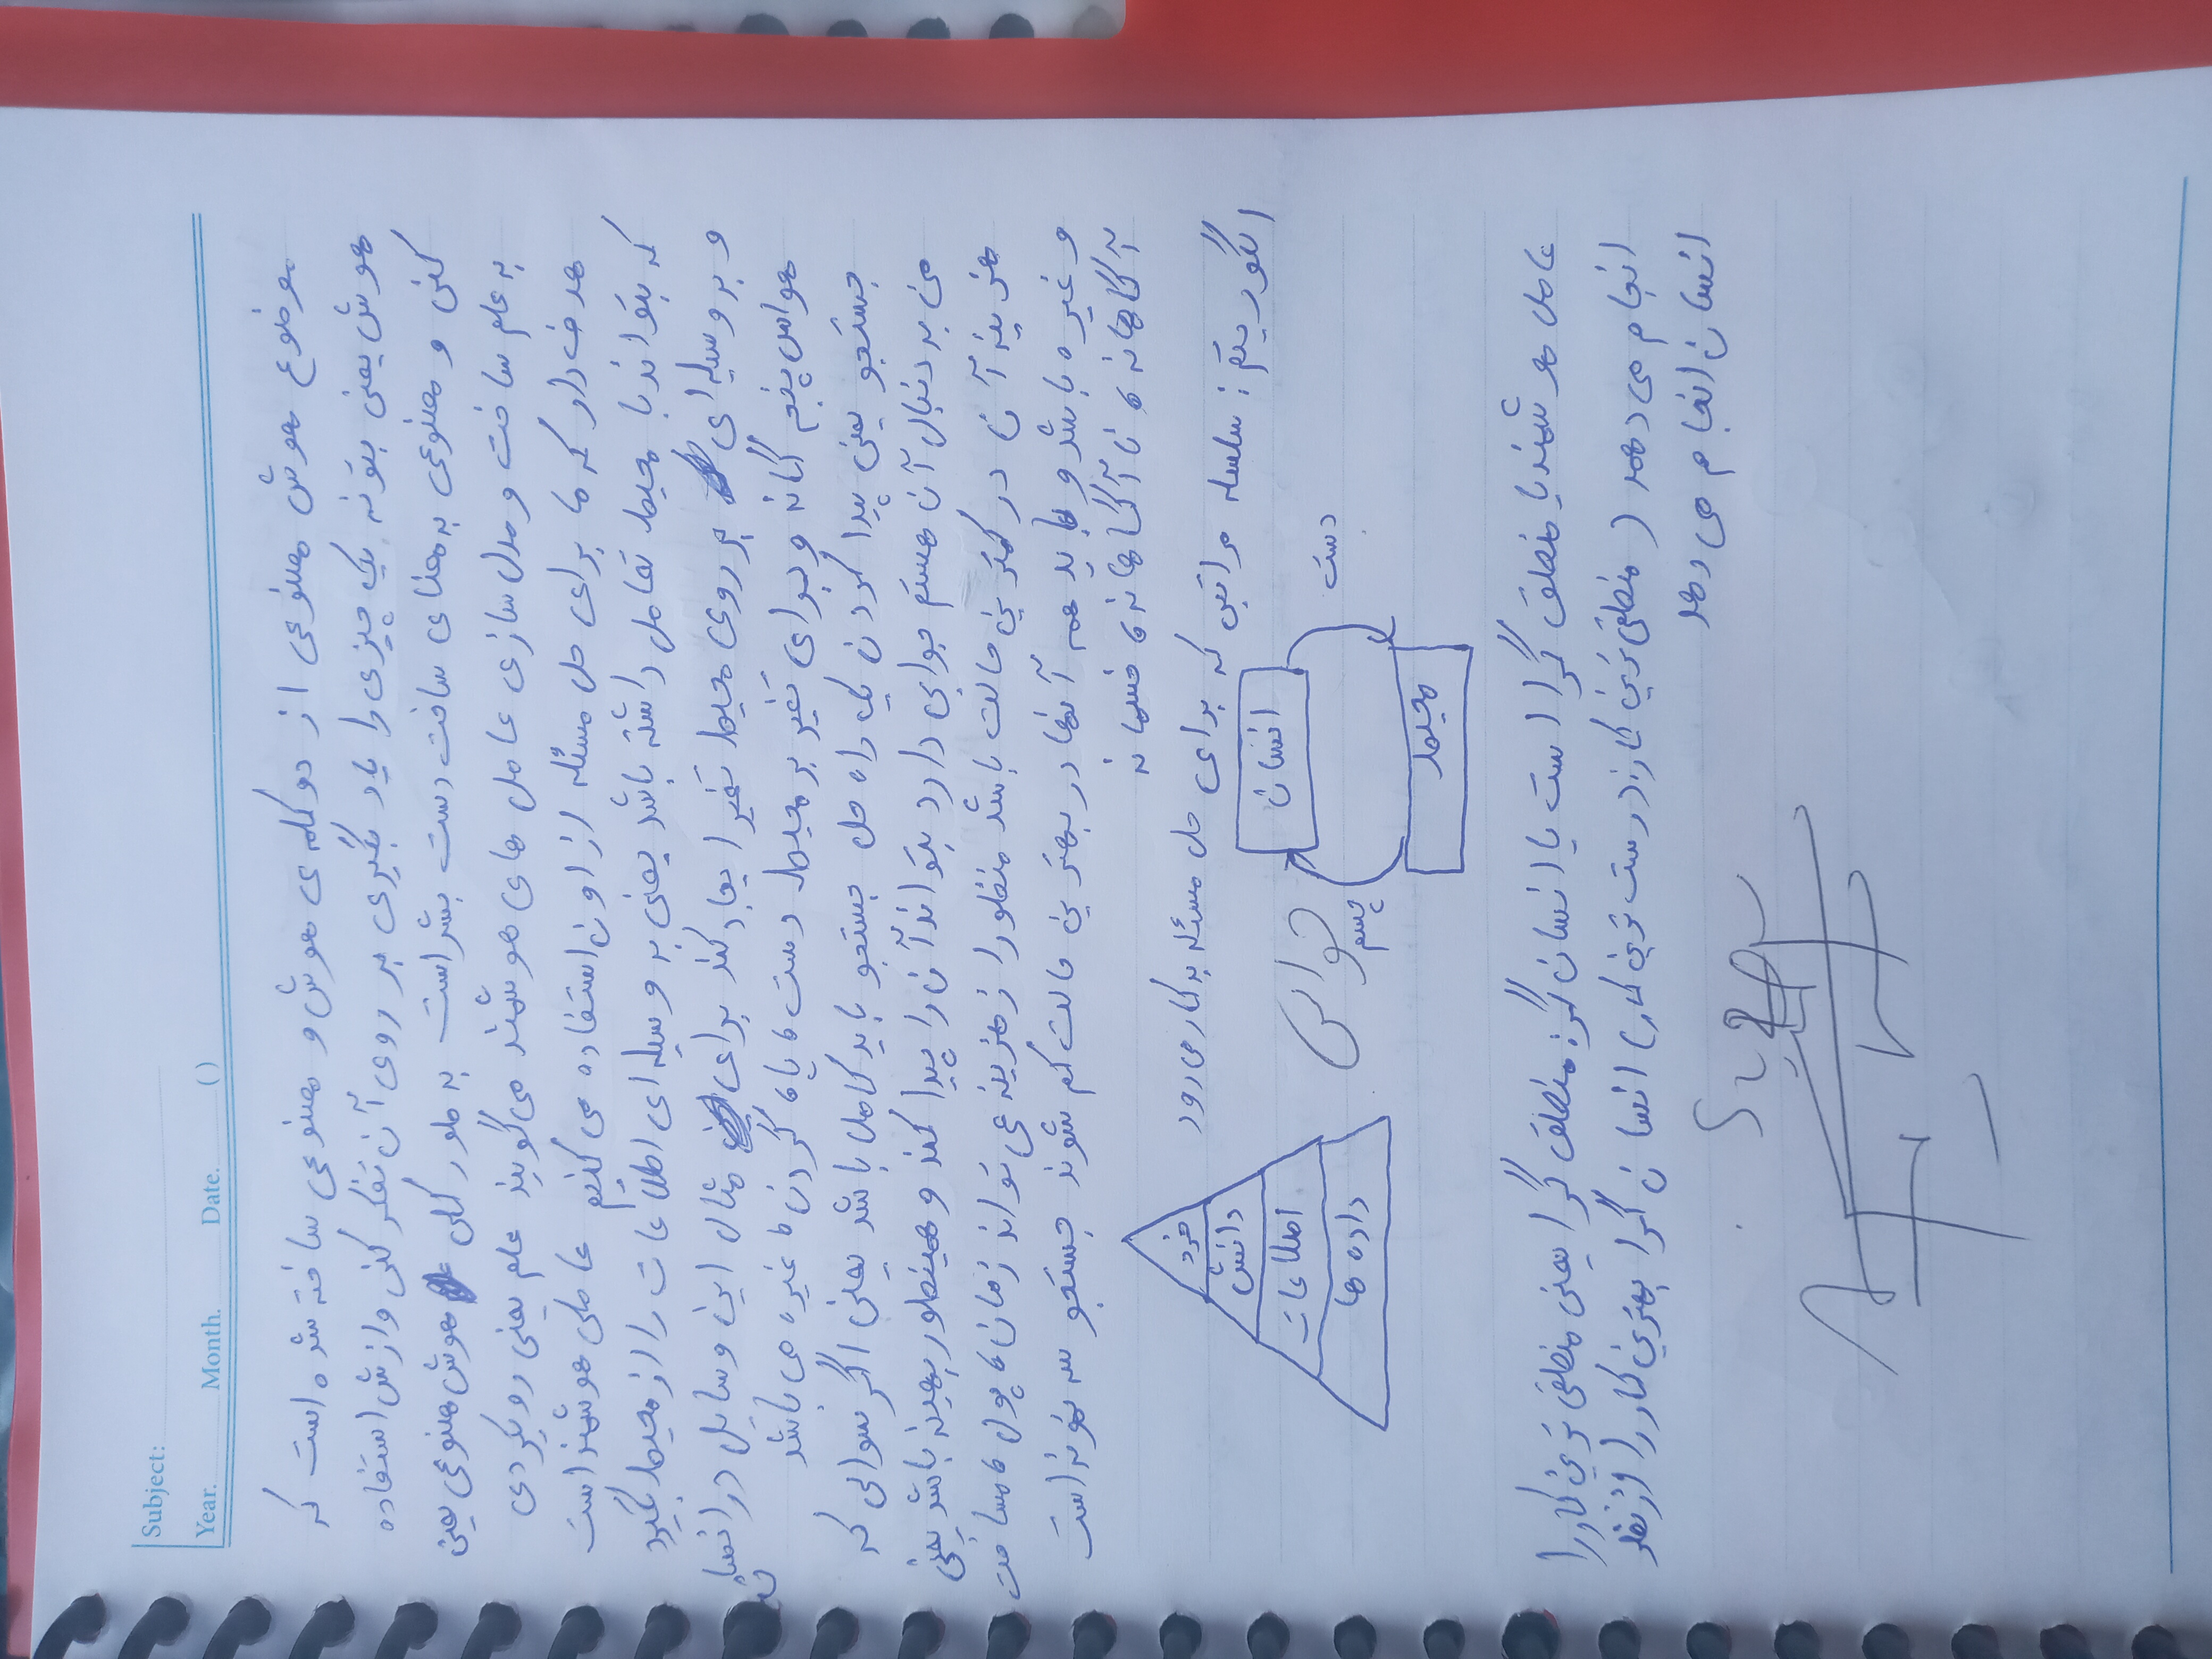 Subject:
Year. Month. Date. ( )
موضوع هوش مصنوعی از دو کلمه ی هوش و مصنوعی ساخته شده است که
هوش یعنی بتونه یک چیزی را یاد بگیری بر روی آن تفکر کنی و ازش استفاده
کنی و مصنوعی به معنای ساخت دست بشر است به طور کلی هوش مصنوعی یعنی
به علم ساخت و مدل سازی عامل های هوشمند می گویند علم یعنی رویکردی
هدف دار که ما برای حل مسئله از اون استفاده می کنیم عاملی هوشمند است
که بتواند با محیط تعامل داشته باشد یعنی به وسیله ای اطلاعات را از محیط بگیرد
و بر وسیله ای بر روی محیط تغیر ایجاد کند برای مثال این وسایل در انسان
هواس پنجم گانه و برای تغیر بر محیط دست، پا، گردن، غیره می باشد
جستجو یعنی پیدا کردن یک راه حل جستجو باید کامل باشد یعنی اگر سوالی که
من به دنبال آن هستم جوابی دارد بتواند آن را پیدا کند و همینطور بهینه باشد یعنی
هزینه آن در کمترین حالت باشد منظور از هزینه می تواند زمان، پول، مسافت
و غیره باشد و باید همه آنها در بهترین حالت کم شوند جستجو سه نمونه است
آگاهانه، نا آگاهانه، خصمانه
الگوریتم: سلسله مراتبی که برای حل مسئله به کار می رود
خرد
دانش
اطلاعات
داده ها
انسان
دست
هواس
چشم
محیط
عامل هوشمند یا منطق گرا است یا انسان گر: منطق گرا یعنی منطقی ترین کار را
انجام می دهد (منطقی ترین کار: درست ترین کار) انسان گرا بهترین کار را از نظر
انسان انجام می دهد